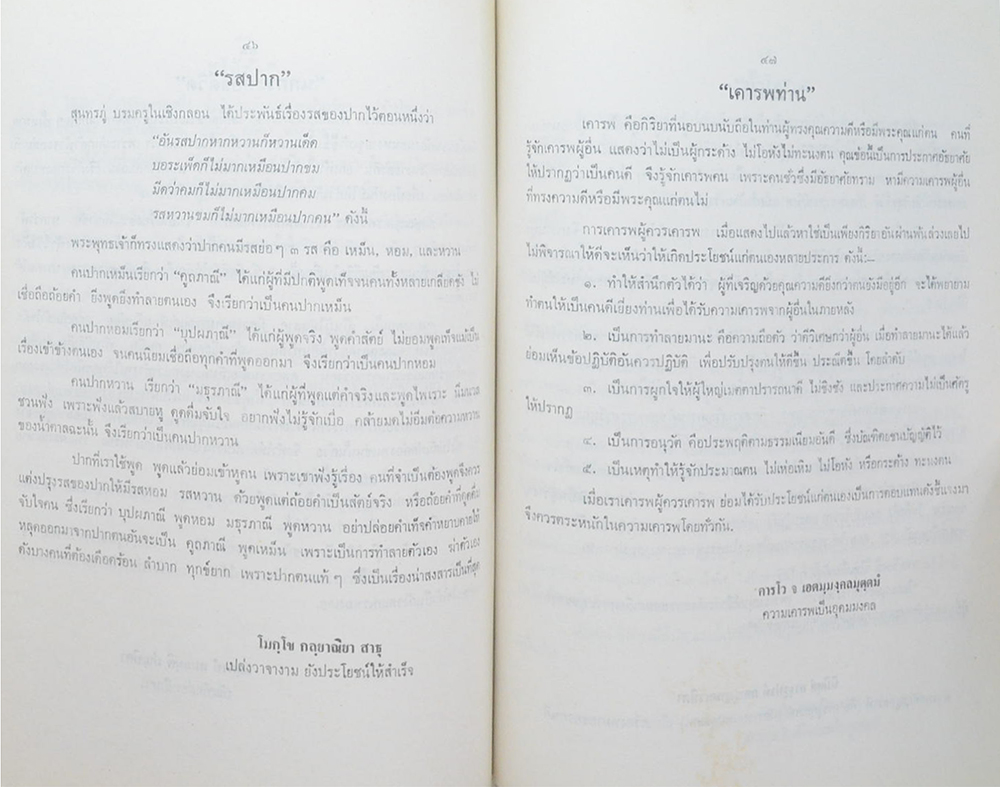 ๔๖
“รสปาก”
สุนทรภู่ บรมครูในเชิงกลอน ได้ประพันธ์เรื่องรสของปากไว้ตอนหนึ่งว่า
“อันรสปากหากหวานก็หวานเด็ด
บอระเพ็ดก็ไม่มากเหมือนปากขม
มีดว่าคมก็ไม่มากเหมือนปากคม
รสหวานขมก็ไม่มากเหมือนปากคน” ดังนี้
พระพุทธเจ้าก็ทรงแสดงว่าปากคนมีรสย่อๆ ๓ รส คือ เหม็น, หอม, และหวาน
คนปากเหม็นเรียกว่า “คูถภาณี” ได้แก่ผู้ที่มีปกติพูดเท็จจนคนทั้งหลายเกลียดชัง ไม่
เชื่อถือถ้อยคำ ยิ่งพูดยิ่งทำลายคนเอง จึงเรียกว่าเป็นคนปากเหม็น
คนปากหอมเรียกว่า “บุปผภาณี” ได้แก่ผู้พูดจริง พูดคำสัตย์ ไม่ยอมพูดเท็จแม้เป็น
เรื่องเข้าข้างตนเอง จนคนนิยมเชื่อถือทุกคำที่พูดออกมา จึงเรียกว่าเป็นคนปากหอม
คนปากหวาน เรียกว่า “มธุรภาณี” ได้แก่ผู้ที่พูดแต่คำจริงและพูดไพเราะ นิ่มนวล
ชวนฟัง เพราะฟังแล้วสบายหู ดูดดื่มจับใจ อยากฟังไม่รู้จักเบื่อ คล้ายมดไม่อิ่มต่อความหวาน
ของน้ำตาลฉะนั้น จึงเรียกว่าเป็นคนปากหวาน
ปากที่เราใช้พูด พูดแล้วย่อมเข้าหูคน เพราะเขาฟังรู้เรื่อง คนที่จำเป็นต้องพูดจึงควร
แต่งปรุงรสของปากให้มีรสหอม รสหวาน ด้วยพูดแต่ถ้อยคำเป็นสัตย์จริง หรือถ้อยคำที่ดูดดื่ม
จับใจคน ซึ่งเรียกว่า บุปผภาณี พูดหอม มธุรภาณี พูดหวาน อย่าปล่อยคำเท็จคำหยาบคายให้
หลุดออกมาจากปากตนอันจะเป็น คูถภาณี พูดเหม็น เพราะเป็นการทำลายตัวเอง ฆ่าตัวเอง
ดังบางคนที่ต้องเดือดร้อน ลำบาก ทุกข์ยาก เพราะปากตนแท้ๆ ซึ่งเป็นเรื่องน่าสงสารเป็นที่สุด
โมกฺโข กลฺยาณิยา สาธุ
เปล่งวาจางาม ยังประโยชน์ให้สำเร็จ
๔๗
“เคารพท่าน”
เคารพ คือกิริยาที่นอบนบนับถือในท่านผู้ทรงคุณความดีหรือมีพระคุณแก่ตน คนที่
รู้จักเคารพผู้อื่น แสดงว่าไม่เป็นผู้กระด้าง ไม่โอหังไม่ทะนงตน คุณข้อนี้เป็นการประกาศอัธยาศัย
ให้ปรากฏว่าเป็นคนดี จึงรู้จักเคารพคน เพราะคนชั่วซึ่งมีอัธยาศัยทราม หามีความเคารพผู้อื่น
ที่ทรงความดีหรือมีพระคุณแก่ตนไม่
การเคารพผู้ควรเคารพ เมื่อแสดงไปแล้วหาใช่เป็นเพียงกิริยาอันผ่านพ้นล่วงเลยไป
ไม่พิจารณาให้ดีจะเห็นว่าให้เกิดประโยชน์แก่ตนเองหลายประการ ดังนี้:-
๑. ทำให้สำนึกตัวได้ว่า ผู้ที่เจริญด้วยคุณความดียิ่งกว่าตนยังมีอยู่อีก จะได้พยายาม
ทำตนให้เป็นคนดีเยี่ยงท่านเพื่อได้รับความเคารพจากผู้อื่นในภายหลัง
๒. เป็นการทำลายมานะ คือความถือตัว ว่าดีวิเศษกว่าผู้อื่น เมื่อทำลายมานะได้แล้ว
ย่อมเห็นข้อปฏิบัติอันควรปฏิบัติ เพื่อปรับปรุงตนให้ดีขึ้น ประณีตขึ้น โดยลำดับ
๓. เป็นการผูกใจให้ผู้ใหญ่เมตตาปรารถนาดี ไม่ชิงชัง และประกาศความไม่เป็นศัตรู
ให้ปรากฏ
๔. เป็นการอนุวัต คือประพฤติตามธรรมเนียมอันดี ซึ่งบัณฑิตชนบัญญัติไว้
๕. เป็นเหตุทำให้รู้จักประมาณตน ไม่เห่อเหิม ไม่โอหัง หรือกระด้าง ทะนงตน
เมื่อเราเคารพผู้ควรเคารพ ย่อมได้รับประโยชน์แก่ตนเองเป็นการตอบแทนดังชี้แจงมา
จึงควรตระหนักในความเคารพโดยทั่วกัน.
คารโว จ เอตมฺมงฺคลมุตฺตมํ
ความเคารพเป็นอุดมมงคล